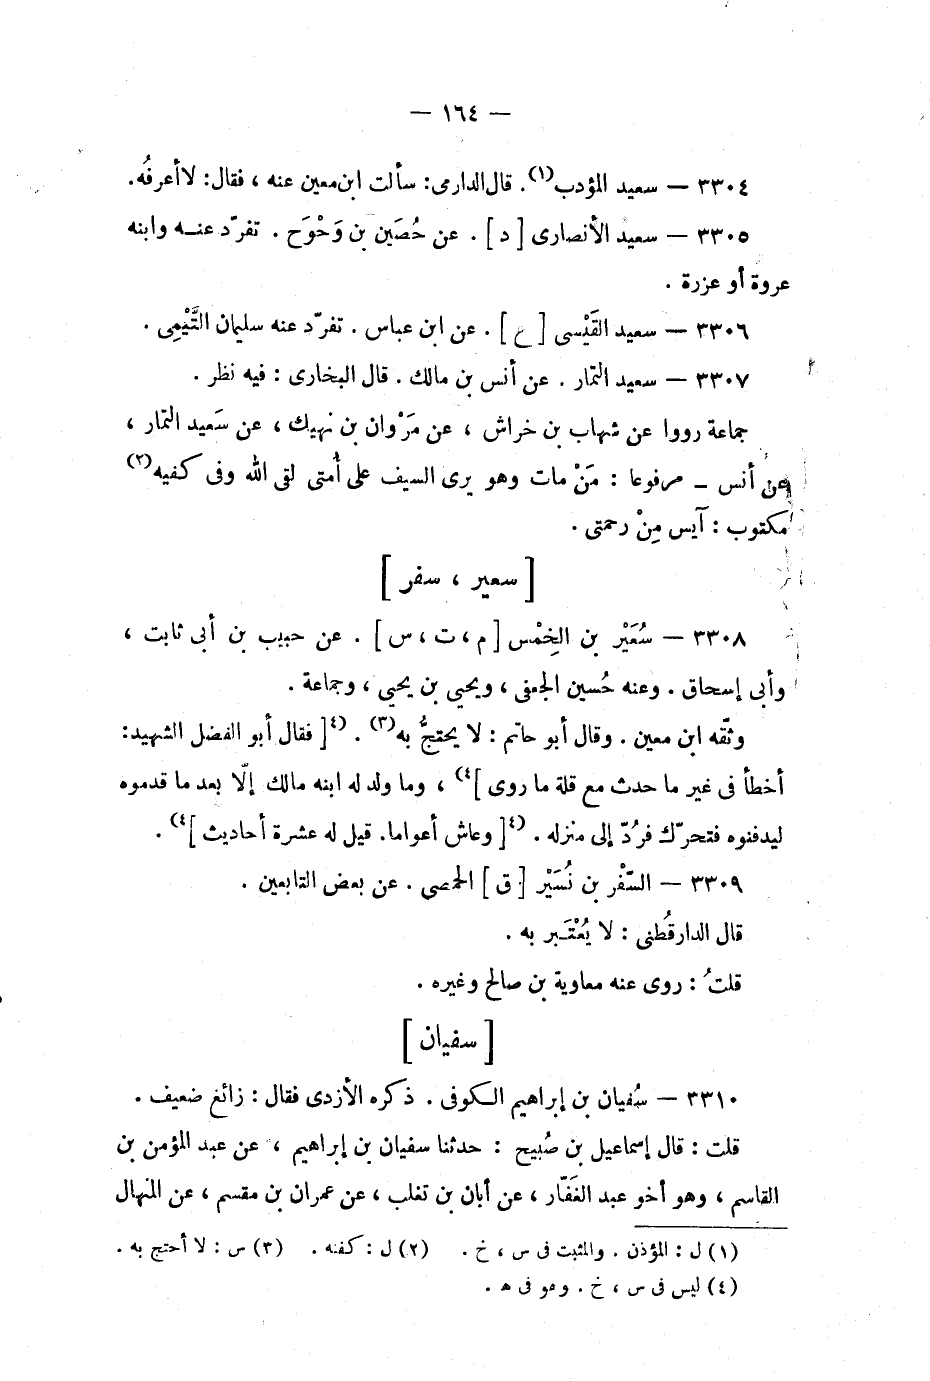 — ١٦٤ —
٣٣٠٤ — سعيد المؤدب(١). قال الدارمى: سألت ابن معين عنه ، فقال: لا أعرفُه.
٣٣٠٥ — سعيد الأنصارى [ د ] . عن حُصَين بن وَحْوَح . تفرّد عنه وابنه
عروة أو عزرة .
٣٣٠٦ — سعيد القَيْسى [ ع ] . عن ابن عباس . تفرّد عنه سليمان التَّيْمِى .
٣٣٠٧ — سعيد التمار . عن أنس بن مالك . قال البخارى : فيه نظر .
جماعة رووا عن شهاب بن خراش ، عن مَرْوان بن نهيك ، عن سَعيد التمار ،
عن أنس – مرفوعا : مَنْ مات وهو يرى السيف على أُمتى لقى الله وفى كفيه(٢)
مكتوب : آيس مِنْ رحمتى .
[ سعير ، سفر ]
٣٣٠٨ — سُعَيْر بن الخِمْس [ م ، ت ، س ] . عن حبيب بن أبى ثابت ،
وأبى إسحاق . وعنه حُسين الجعفى ، ويحيى بن يحيى ، وجماعة .
وثّقه ابن معين . وقال أبو حاتم : لا يحتجُّ به(٣) . (٤[ فقال أبو الفضل الشهيد :
أخطأ فى غير ما حدث مع قلة ما روى ]٤) ، وما ولد له ابنه مالك إلّا بعد ما قدموه
ليدفنوه فتحرّك فرُدّ إلى منزله . (٤[ وعاش أعواما. قيل له عشرة أحاديث ]٤) .
٣٣٠٩ — السّفْر بن نُسَيْر [ ق ] الحمصي . عن بعض التابعين .
قال الدارقُطنى : لا يُعْتَبر به .
قلتُ : روى عنه معاوية بن صالح وغيره .
[ سفيان ]
٣٣١٠ — سُفيان بن إبراهيم الكوفى . ذكره الأزدى فقال : زائغ ضعيف .
قلت : قال إسماعيل بن صُبيح : حدثنا سفيان بن إبراهيم ، عن عبد المؤمن بن
القاسم ، وهو أخو عبد الغَفّار ، عن أبان بن تغلب ، عن عمران بن مقسم ، عن المنهال
(١) ل : المؤذن . والمثبت فى س ، خ . (٢) ل : كفنه . (٣) س : لا أحتج به .
(٤) ليس فى س ، خ . وهو فى ه .